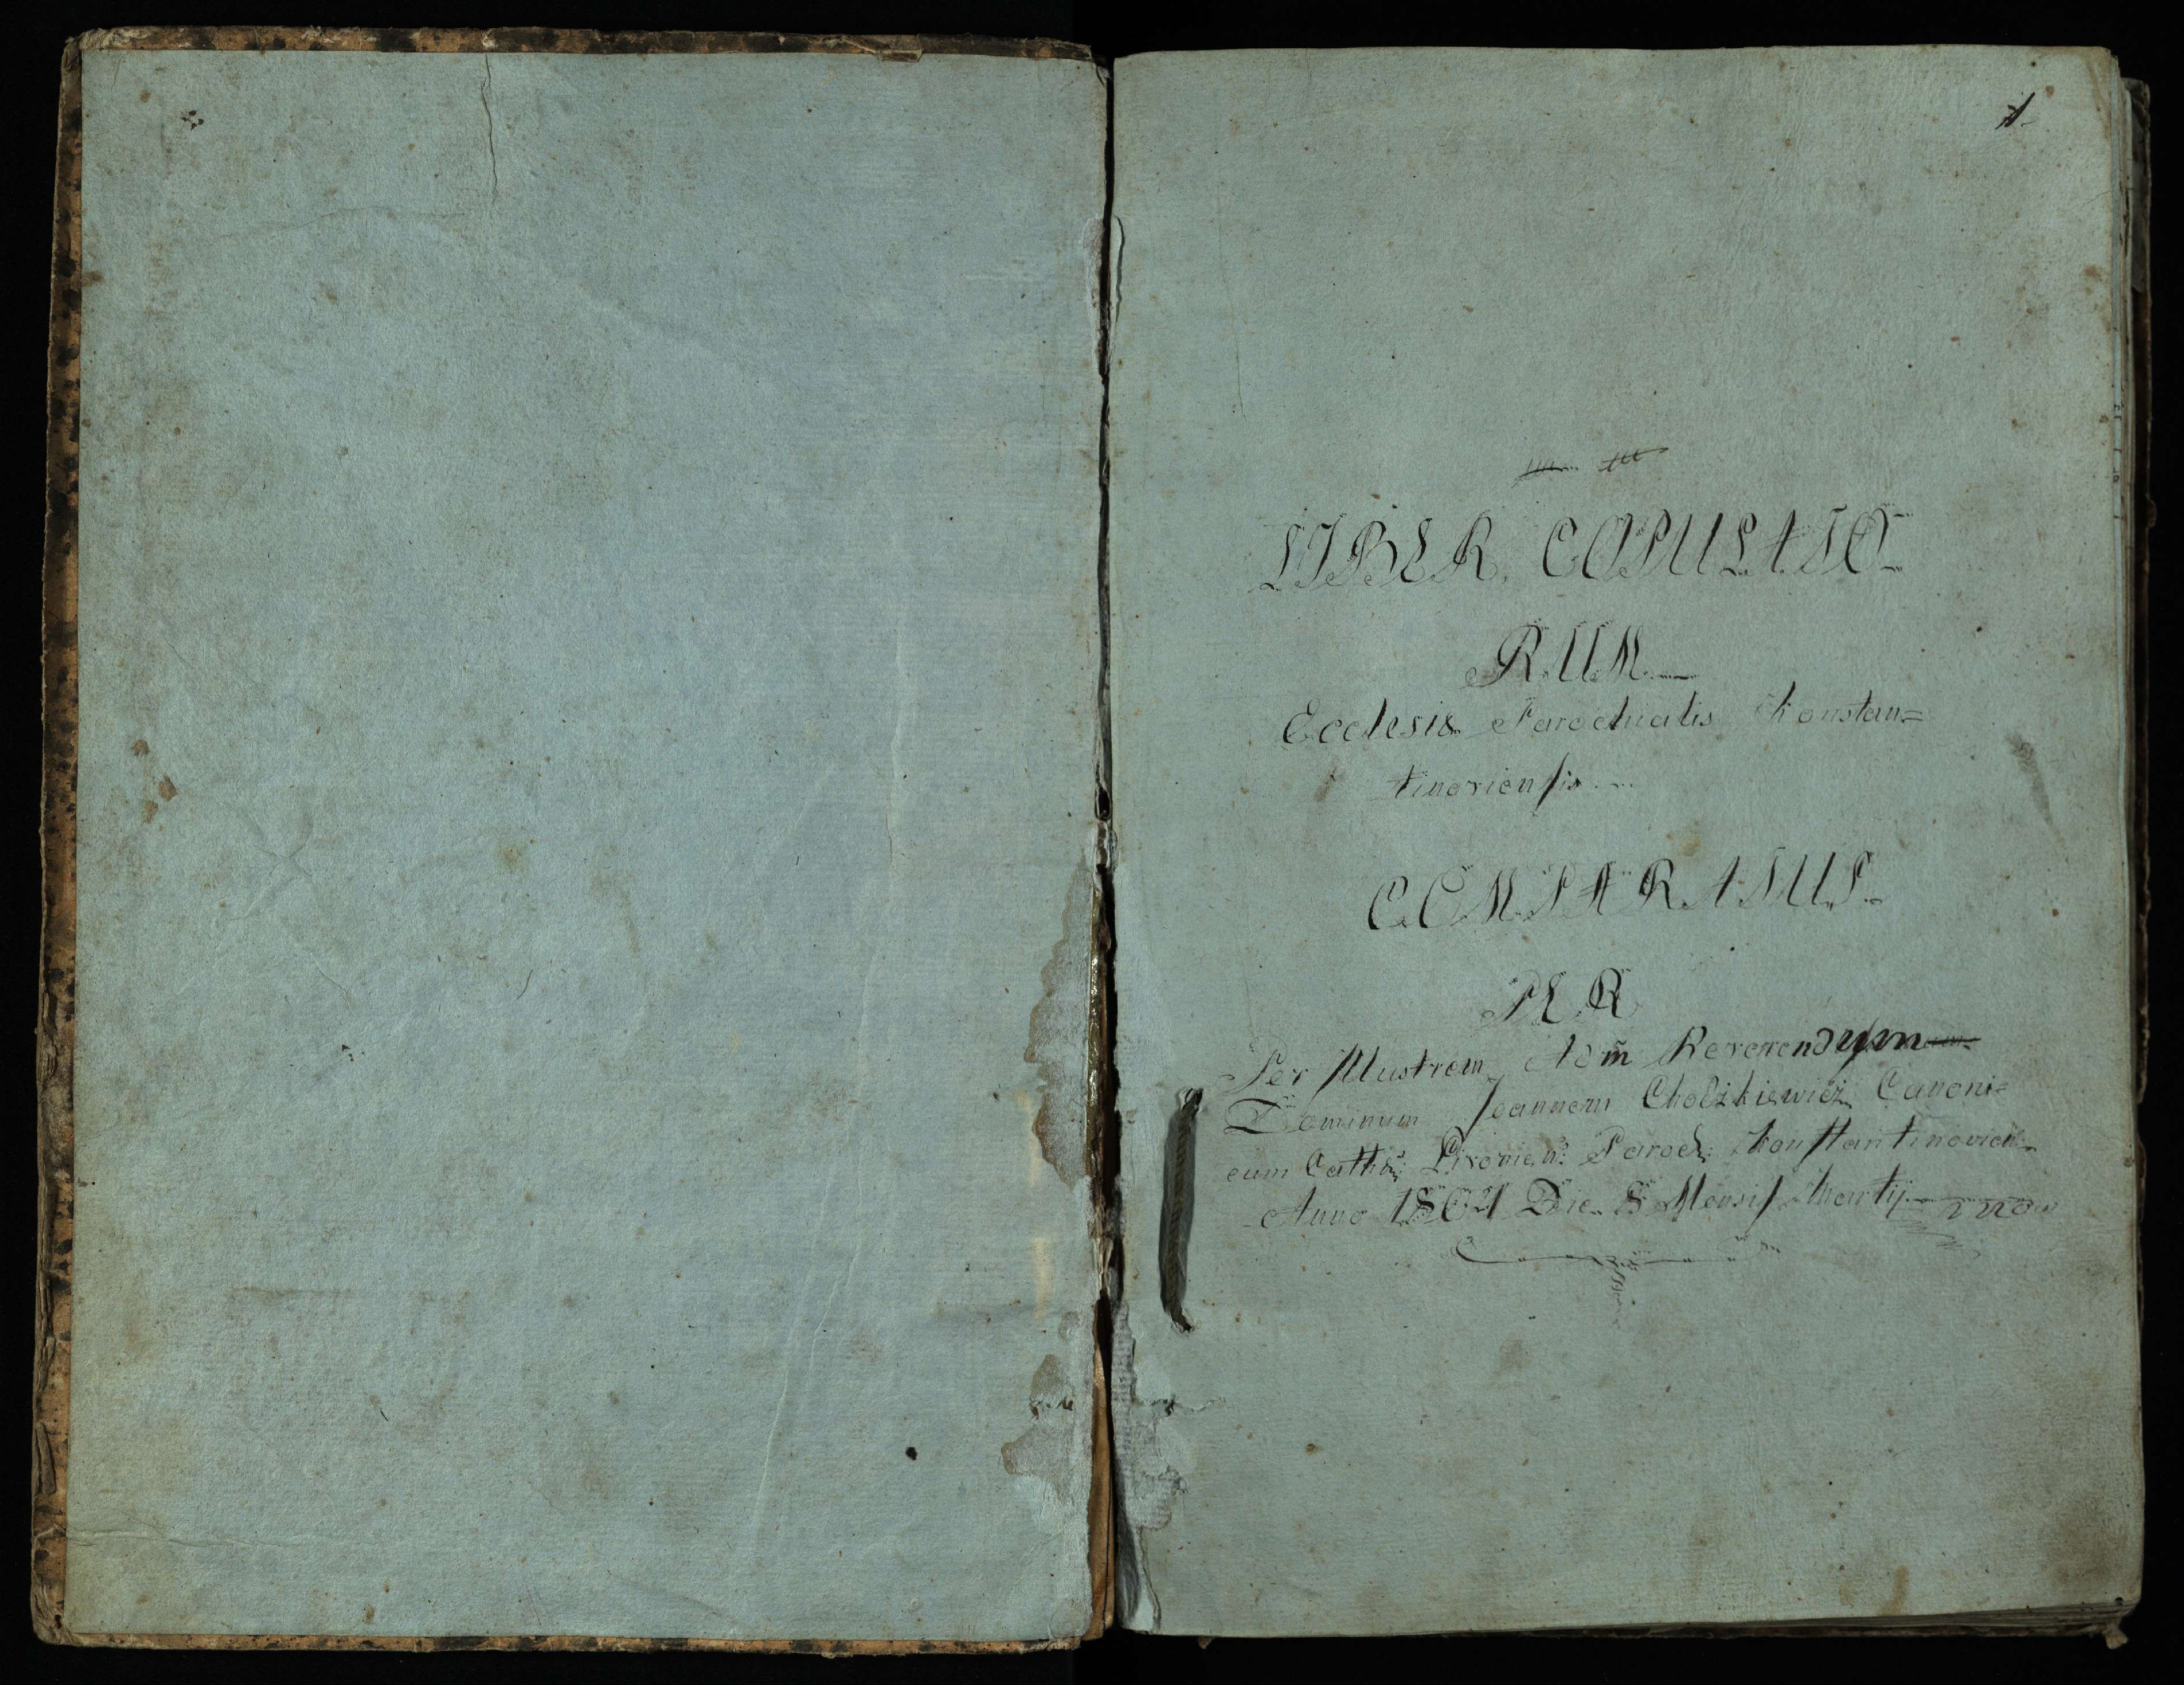 1
LIBER COPULATO-
RUM
Ecclesiæ Parochialis Konstan=
tinoviensis
COMPARATUS
PER
Per Illustrem Adm̃ Reverendum
Dominum Joannem Chodzkiewicz Canoni=
cum Cath: Livonien: Paroch: Konstantinovien:
Anno 1801 Die 8 Mensis Martij